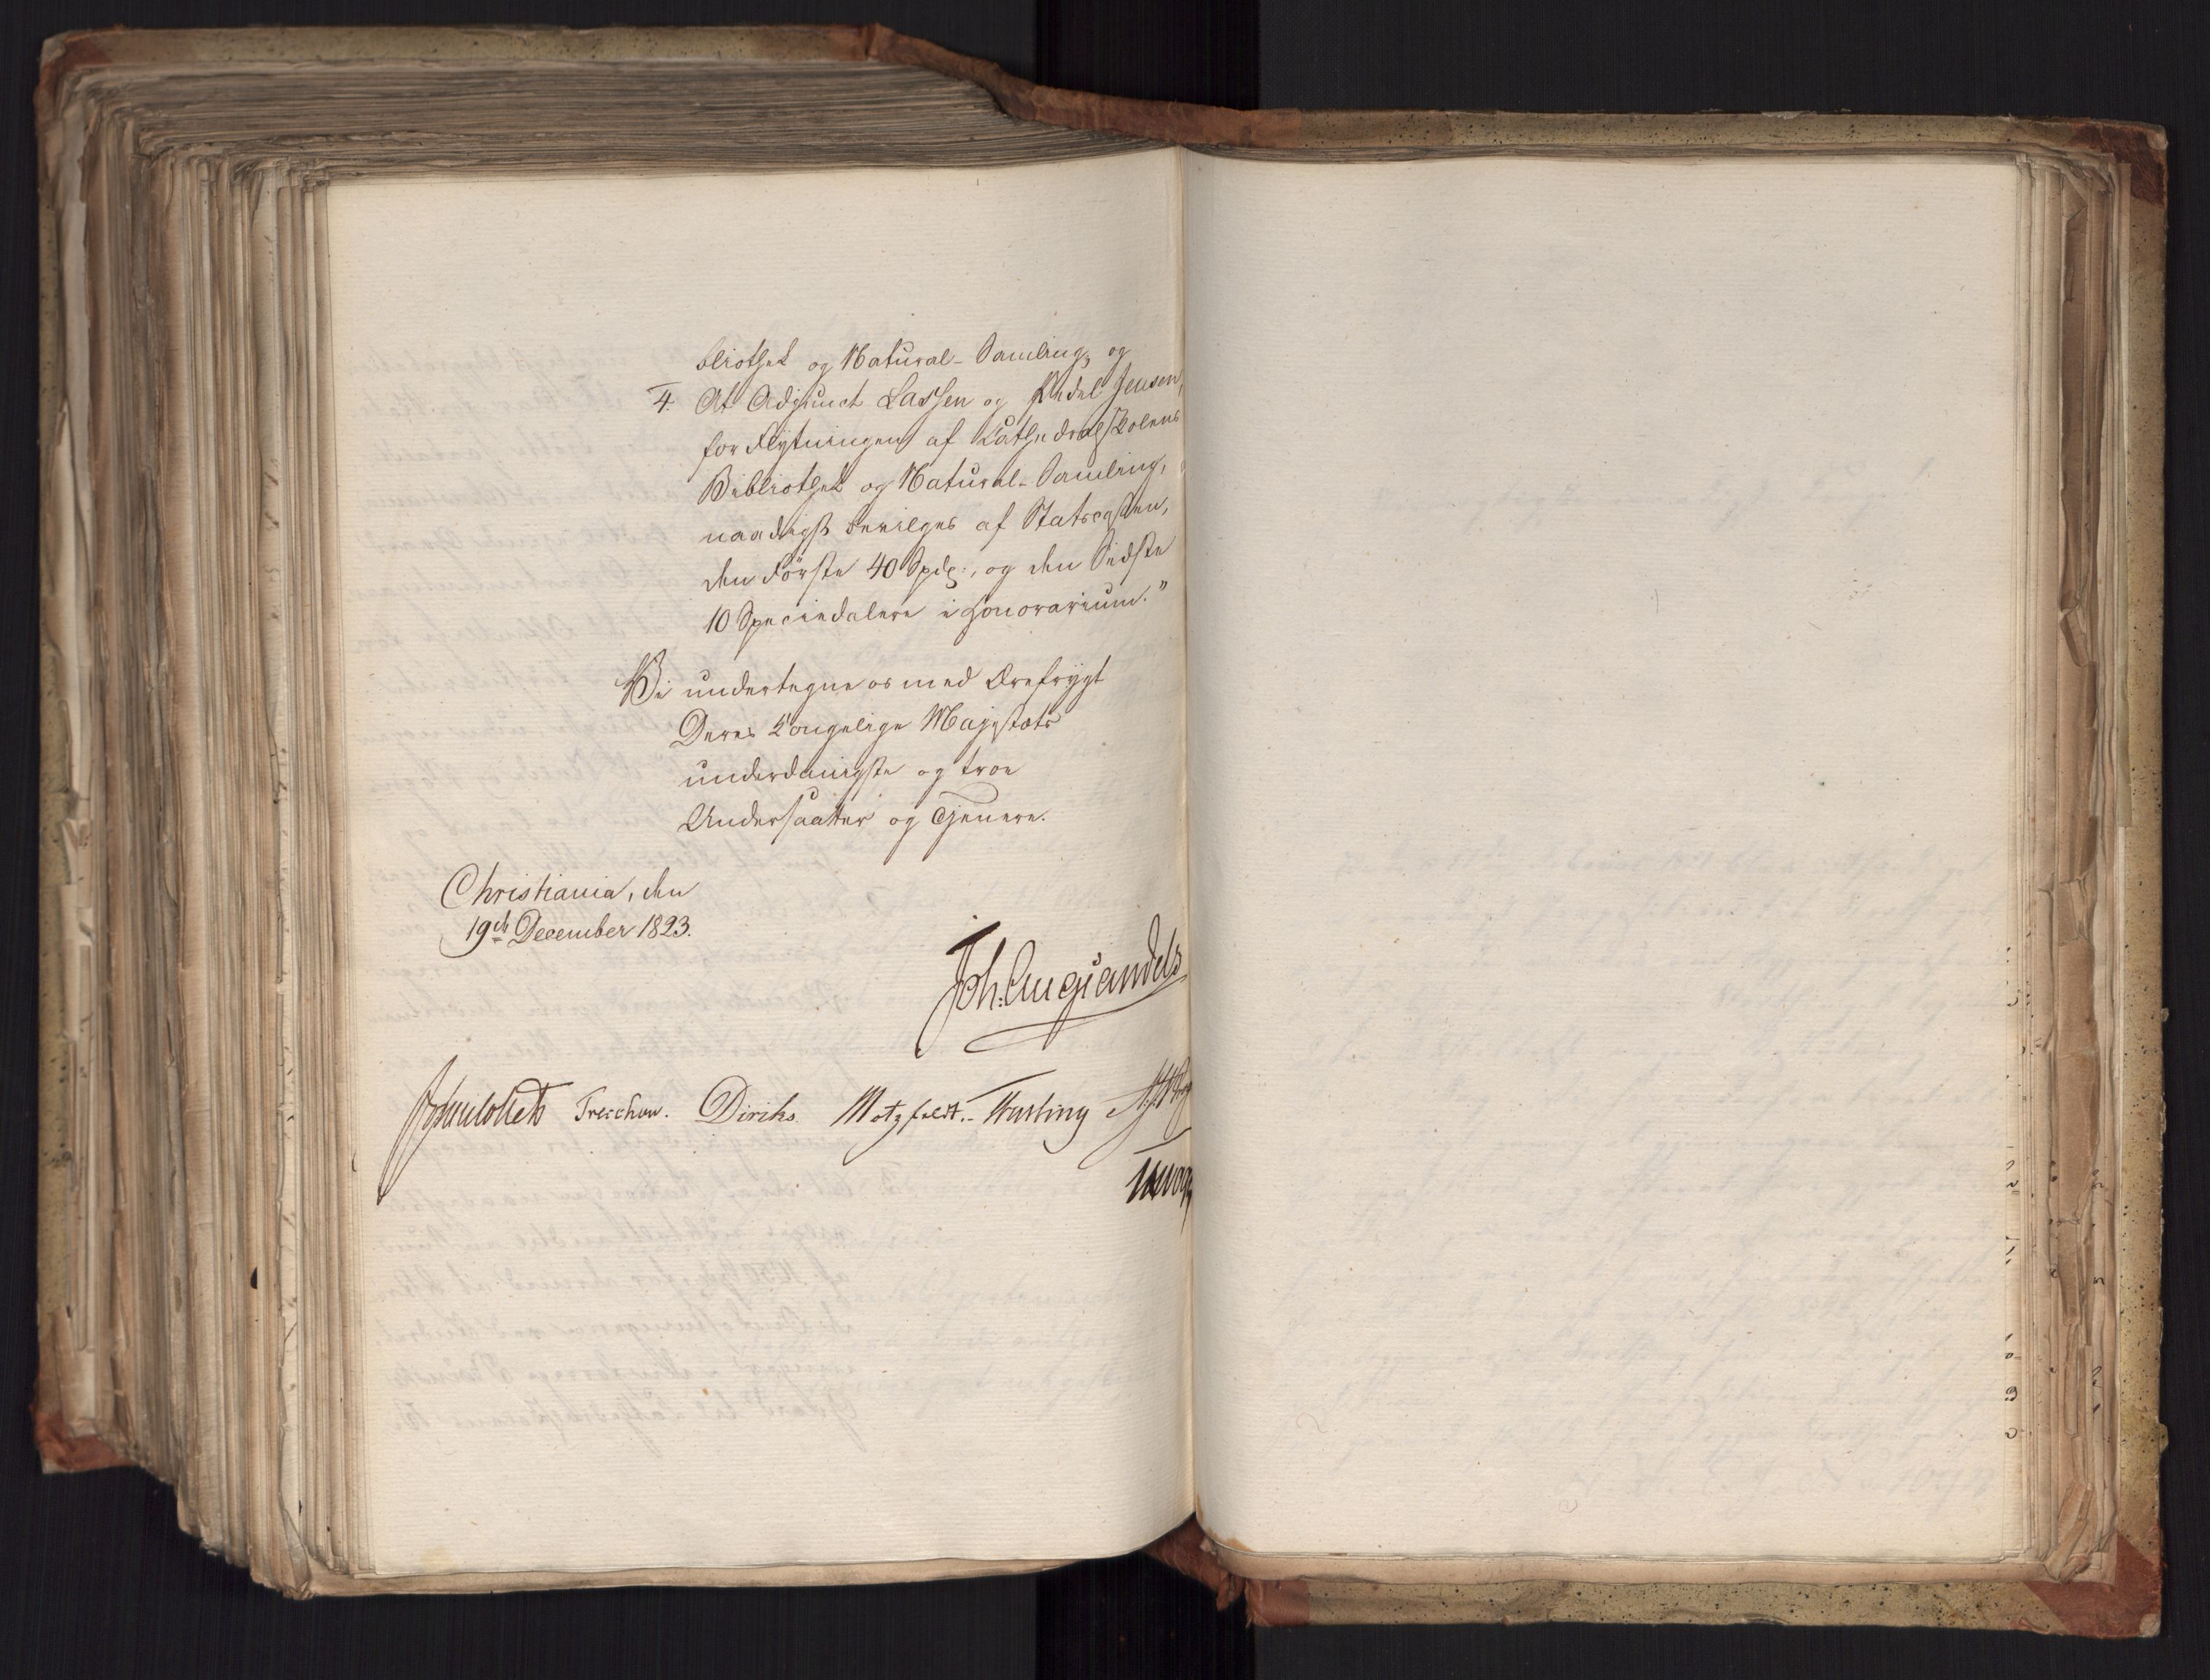 bliothek og Natural-Samling, og
4. At Adjunct Lassen og Pedel Jensen,
for Flytningen af Kathedralskolens
Bibliothek og Natural-Samling,
naadigst bevilges af Statscassen,
den Første 40 Spdr., og den Sidste
10 Speciedalere i Honorarium."
Vi undertegne os med Ærefrygt
Deres Kongelige Majestæts
underdanigste og troe
Undersaatter og Tjenere.
Christiania, den
19de December 1823.
Joh: Aug: Sandels
Treschow. Diriks. Motzfeldt.